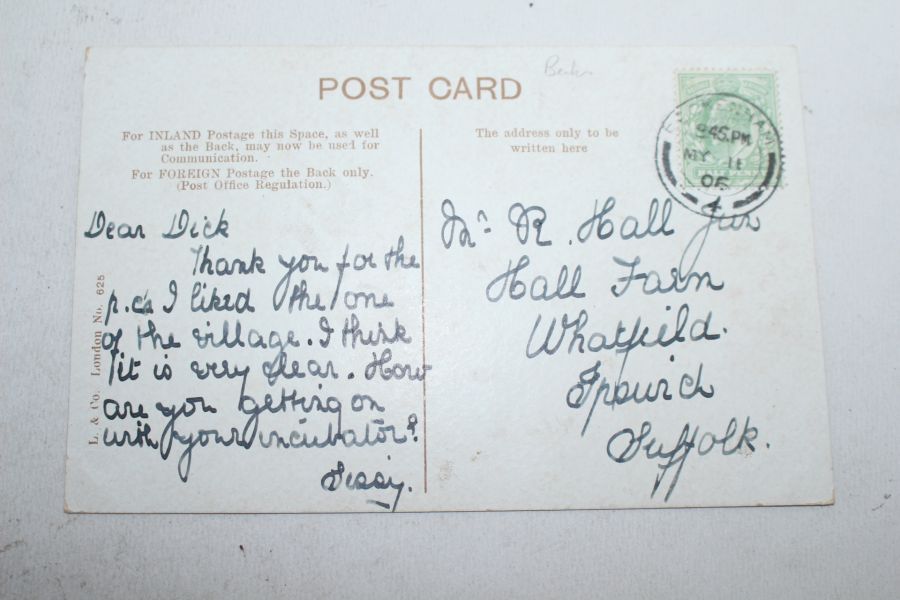 POST CARD
For INLAND Postage this Space, as well
as the Back, may now be used for
Communication.
For FOREIGN Postage the Back only.
(Post Office Regulation.)
The address only to be
written here
9.45.PM
MY 11
06
4
HALF PENNY
Dear Dick
Thank you for the
p.cs I liked the one
of the village. I think
it is very clear. How
are you getting on
with your incubator?
Sissy.
Mr. R. Hall Jun
Hall Farm
Whatfield.
Ipswich
Suffolk.
L. & Co. London No. 625